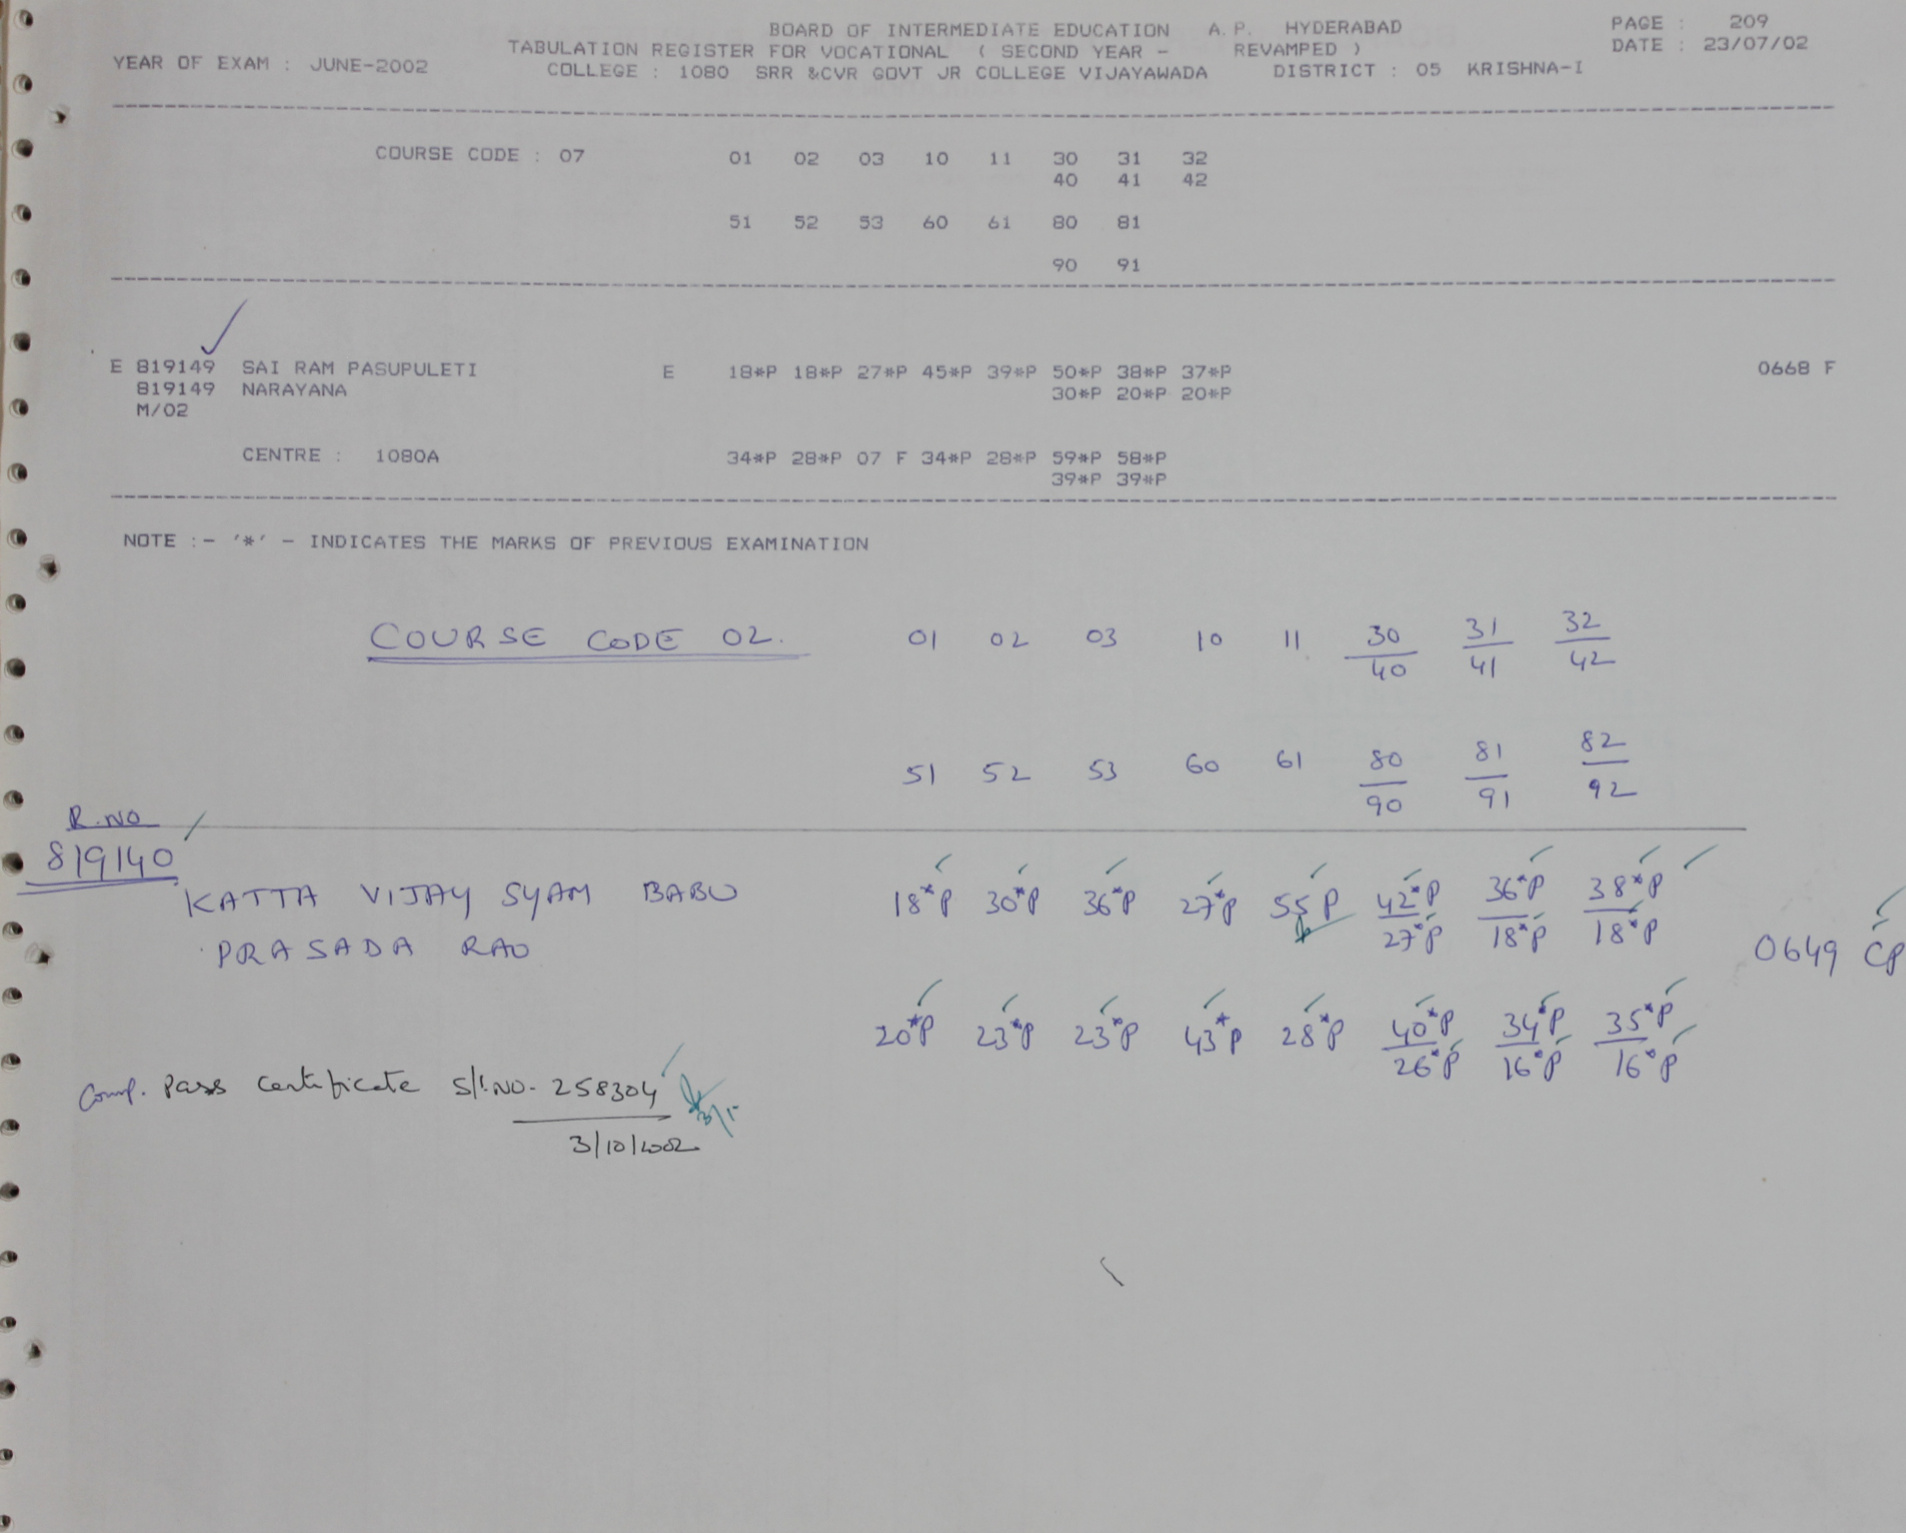 BOARD OF INTERMEDIATE EDUCATION A.P. HYDERABAD PAGE : 209
TABULATION REGISTER FOR VOCATIONAL ( SECOND YEAR - REVAMPED ) DATE : 23/07/02
YEAR OF EXAM : JUNE-2002 COLLEGE : 1080 SRR &CVR GOVT JR COLLEGE VIJAYAWADA DISTRICT : 05 KRISHNA-I
COURSE CODE : 07 01 02 03 10 11 30 31 32
40 41 42
51 52 53 60 61 80 81
90 91
E 819149 SAI RAM PASUPULETI E 18*P 18*P 27*P 45*P 39*P 50*P 38*P 37*P 0668 F
819149 NARAYANA 30*P 20*P 20*P
M/02
CENTRE : 1080A 34*P 28*P 07 F 34*P 28*P 59*P 58*P
39*P 39*P
NOTE :- '*' - INDICATES THE MARKS OF PREVIOUS EXAMINATION
COURSE CODE 02. 01 02 03 10 11 30 31 32
40 41 42
51 52 53 60 61 80 81 82
90 91 92
R.NO
819140
KATTA VIJAY SYAM BABU 18*P 30*P 36*P 27*P 55 P 42*P 36*P 38*P
PRASADA RAO 27*P 18*P 18*P 0649 CP
20*P 23*P 23*P 43*P 28*P 40*P 34*P 35*P
26*P 16*P 16*P
Comp. Pass Certificate Sl.NO. 258304
3/10/2002